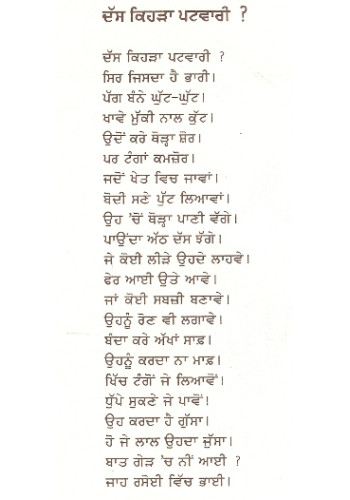 ਦੱਸ ਕਿਹੜਾ ਪਟਵਾਰੀ ?
ਦੱਸ ਕਿਹੜਾ ਪਟਵਾਰੀ ?
ਸਿਰ ਜਿਸਦਾ ਹੈ ਭਾਰੀ।
ਪੱਗ ਬੰਨੇ ਘੁੱਟ-ਘੁੱਟ।
ਖਾਵੇ ਮੁੱਕੀ ਨਾਲ ਕੁੱਟ।
ਉਦੋਂ ਕਰੇ ਥੋੜ੍ਹਾ ਸ਼ੋਰ।
ਪਰ ਟੰਗਾਂ ਕਮਜ਼ੋਰ।
ਜਦੋਂ ਖੇਤ ਵਿਚ ਜਾਵਾਂ।
ਬੋਦੀ ਸਣੇ ਪੁੱਟ ਲਿਆਵਾਂ।
ਉਹ 'ਚੋਂ ਥੋੜ੍ਹਾ ਪਾਣੀ ਵੱਗੇ।
ਪਾਉਂਦਾ ਅੱਠ ਦੱਸ ਝੱਗੇ।
ਜੇ ਕੋਈ ਲੀੜੇ ਉਹਦੇ ਲਾਹਵੇ।
ਫੇਰ ਆਈ ਉਤੇ ਆਵੇ।
ਜਾਂ ਕੋਈ ਸਬਜ਼ੀ ਬਣਾਵੇ।
ਉਹਨੂੰ ਰੋਣ ਵੀ ਲਗਾਵੇ।
ਬੰਦਾ ਕਰੇ ਅੱਖਾਂ ਸਾਫ਼।
ਉਹਨੂੰ ਕਰਦਾ ਨਾ ਮਾਫ਼।
ਖਿੱਚ ਟੰਗੋਂ ਜੇ ਲਿਆਵੋਂ।
ਧੁੱਪੇ ਸੁਕਣੇ ਜੇ ਪਾਵੋਂ।
ਉਹ ਕਰਦਾ ਹੈ ਗੁੱਸਾ।
ਹੋ ਜੇ ਲਾਲ ਉਹਦਾ ਜੁੱਸਾ।
ਬਾਤ ਗੇੜ 'ਚ ਨੀਂ ਆਈ ?
ਜਾਹ ਰਸੋਈ ਵਿੱਚ ਭਾਈ।